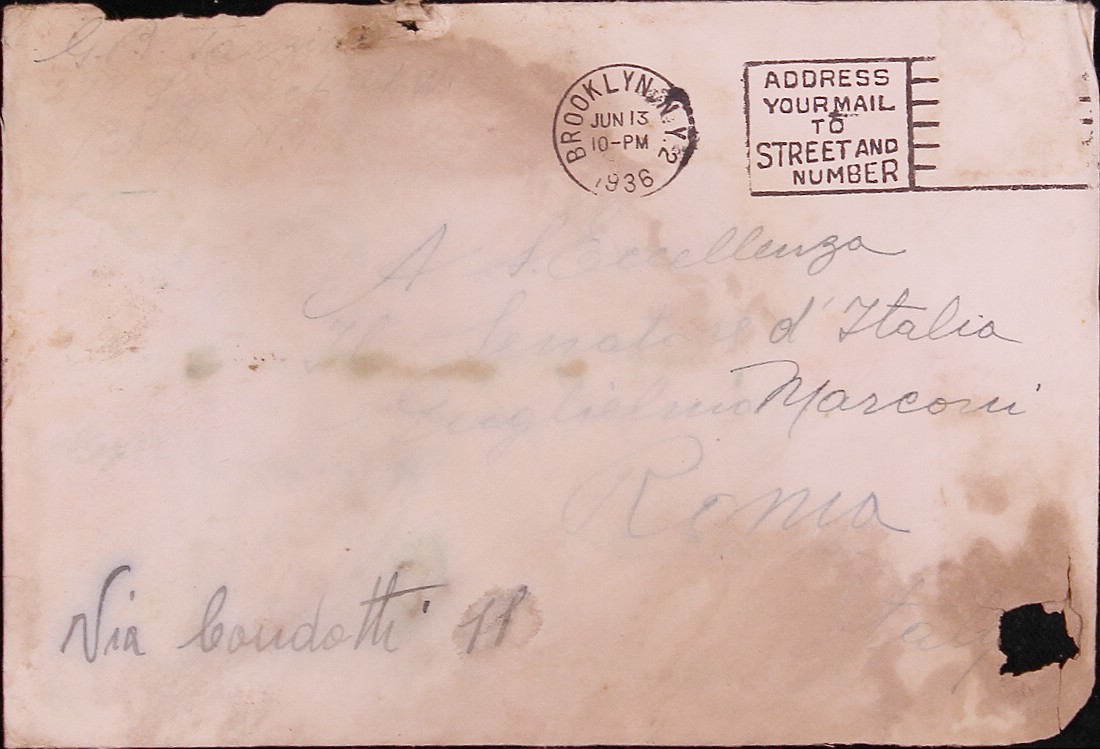 G. B.
BROOKLYN, N.Y. 2
JUN 13
10-PM
1936
ADDRESS
YOUR MAIL
TO
STREET AND
NUMBER
A S. Eccellenza
Il Senatore d'Italia
Guglielmo Marconi
Roma
Via Condotti 11
Italy